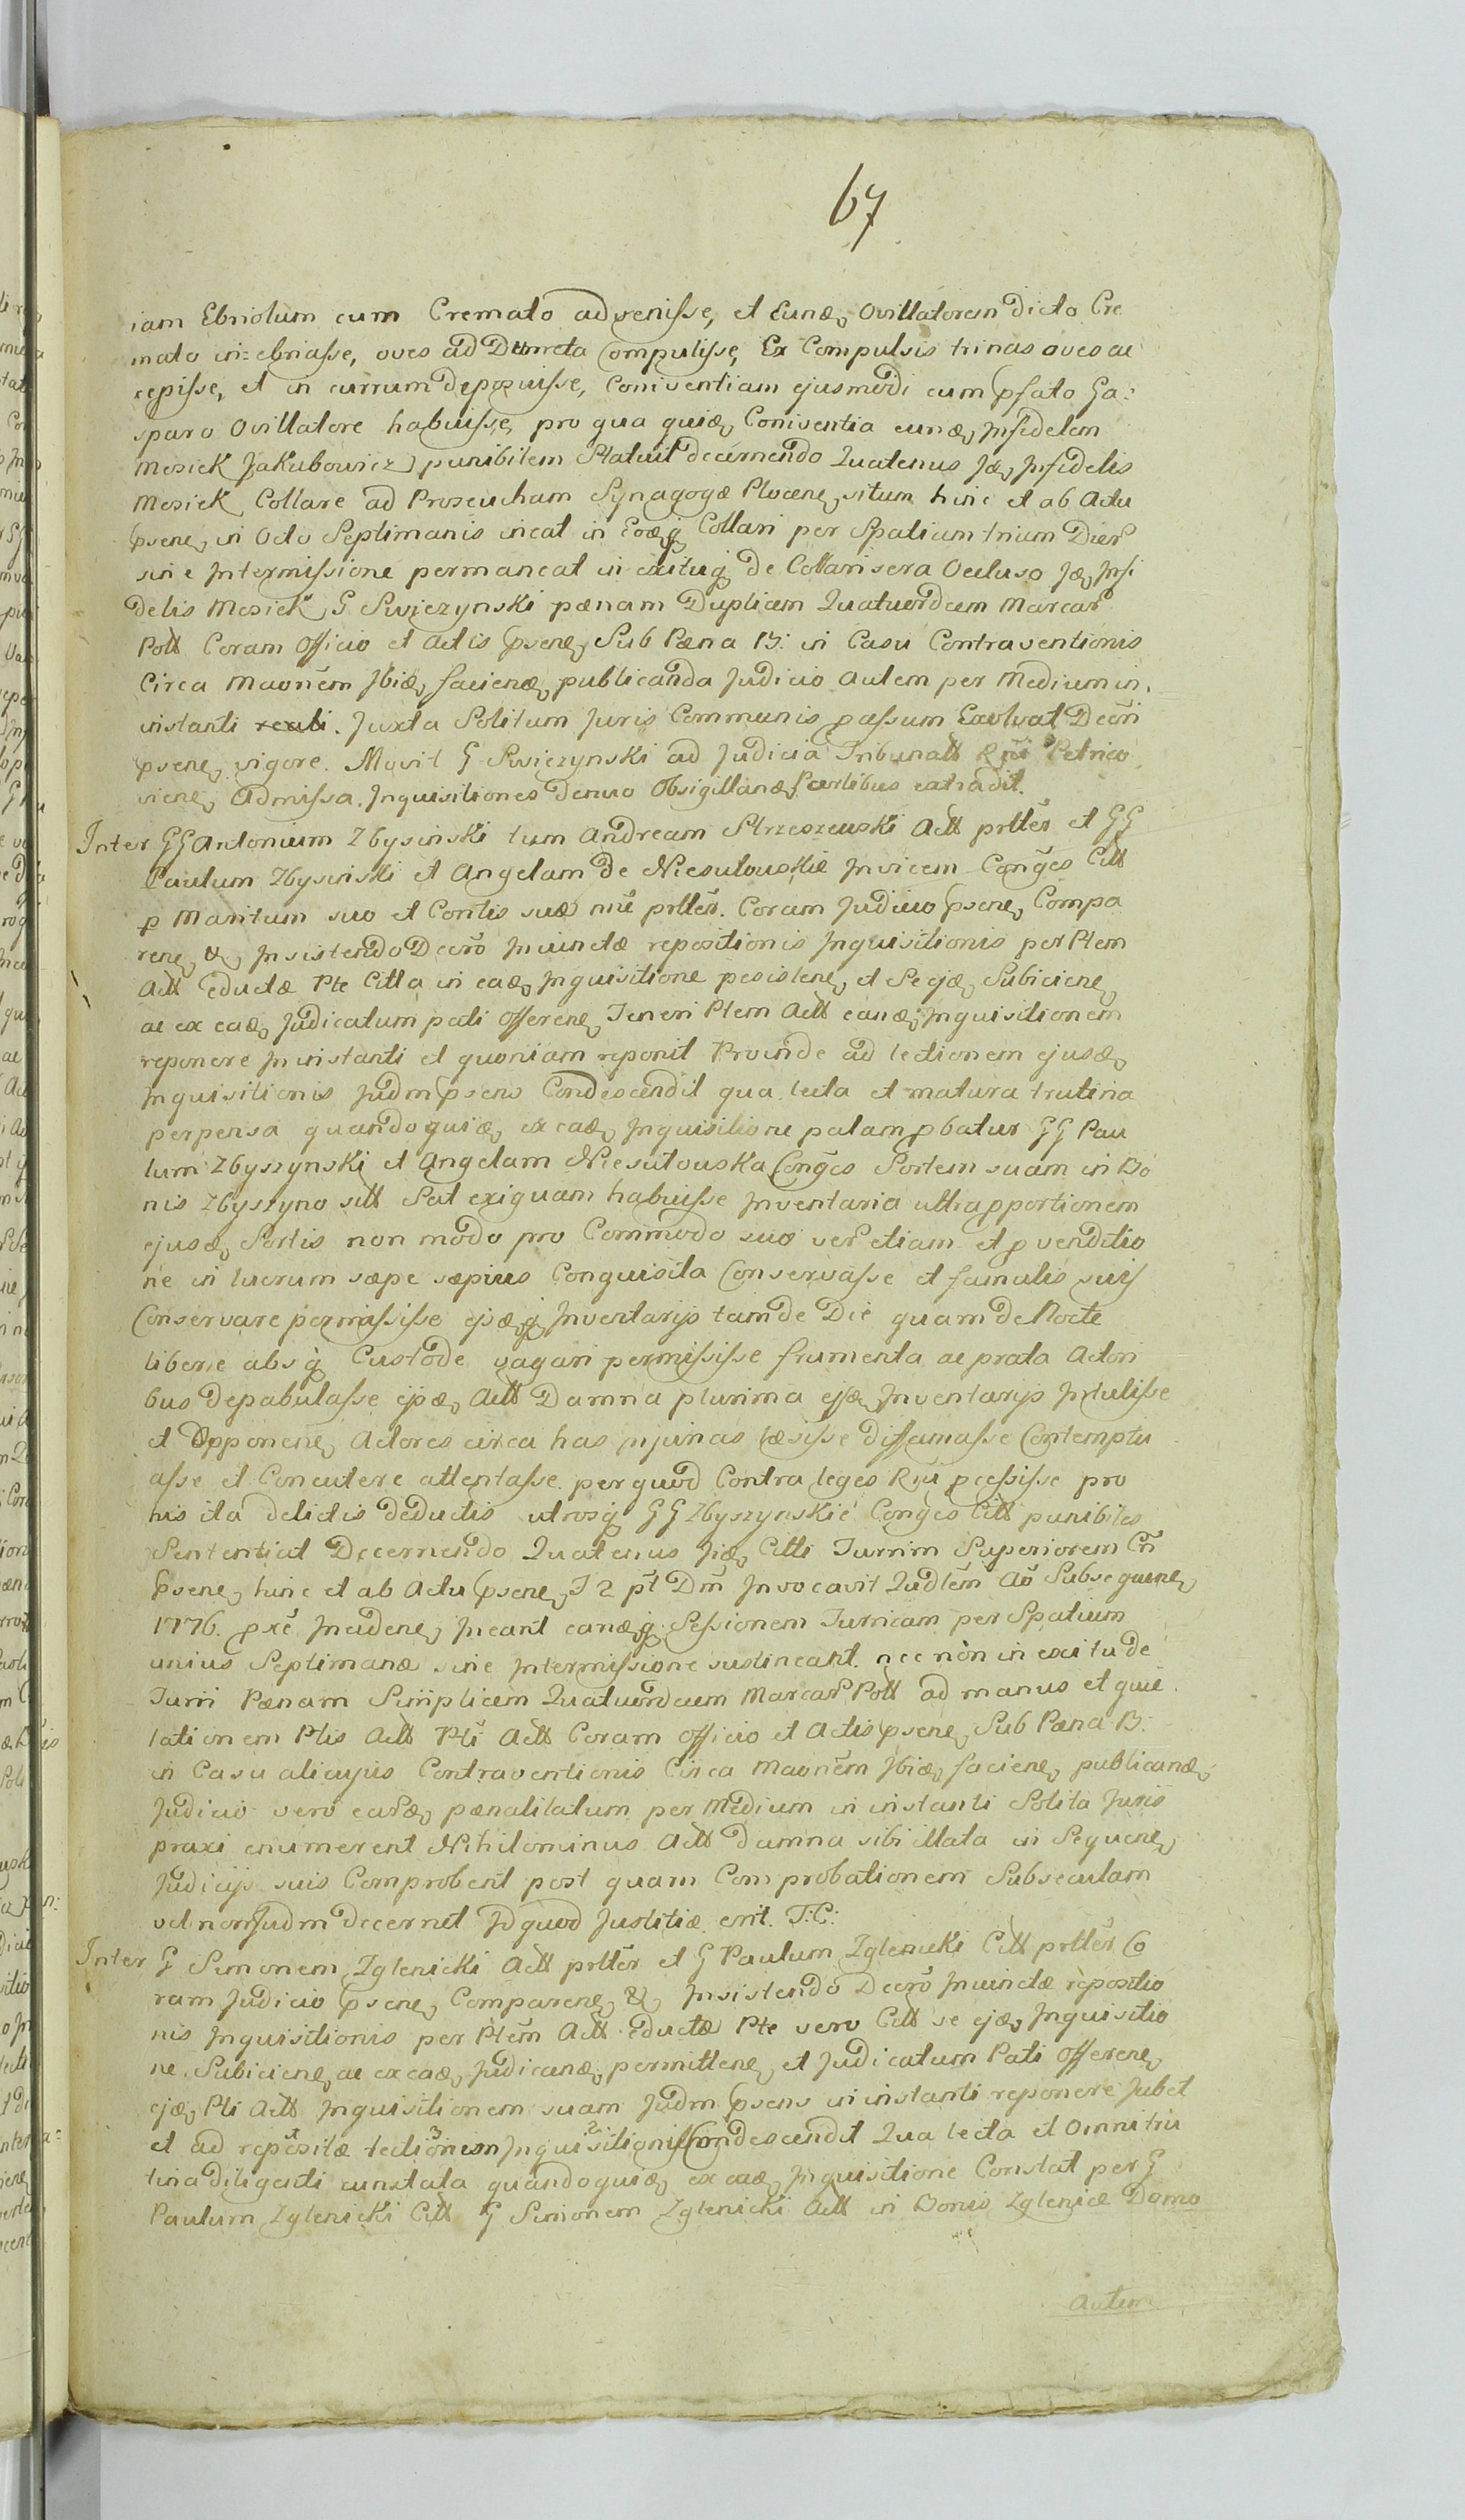 67
iam Ebriolum cum Cremato advenisse, et Eundē Ovillatorem dicto Cre
mato in=ebriasse, oves ad Dumeta Compulisse, Ex Compulsis trinas oves ac
cepisse, et in currum deposuisse, Coniventiam ejusmodi cum pfato Ga:
sparo Ovillatore habuisse, pro qua quidē Coniventia eundē Infidelem
Mosiek Jakubowicz punibilem Statuit decernendo Quatenus Idē Infidelis
Mosiek Collare ad Proseucham Synagogæ Plocenē situm hinc et ab Actu
psenē in Octo Septimanis ineat in Eodēq Collari per Spatium trium Dier
sine Intermissione permaneat in exituq de Collari sera Ocluso Idē Infi
delis Mosiek G Swięzynski pænam Duplicem Quatuordecem Marcar
Poll Coram Officio et Actis psenē Sub Pæna B: in Casu Contraventionis
Circa Maonem Ibidē faciendē publicanda Judicio Autem per Medium in
instanti reali. Juxta Solitum Juris Communis passum Exolvat Decri
psenē vigore. Movit G Swięzynski ad Judicia Tribunall Rni Petrico
vienē Admissa. Inquisitiones denuo Obsigillandē Partibus extradit.
Inter GG Antonium Zbysinski tum Andream Strzeszewski Actt prtter et GG
Paulum Zbysinski et Angelam de Niesulouskie Invicem Conges Citt
p Maritum suo et Contis suæ nie prtter. Coram Judicio psenē Compa
renē &, Insistendo Decro Iniunctæ repositionis Inquisitionis per Ptem
Actt Eductæ Pte Citta in eadē Inquisitione pesistenē et Se ejdē Subicienē
ac ex eadē Judicatum pati Offerenē Teneri Ptem Actt eandē Inquisitionem
reponere In instanti et quoniam reponit Proinde ad lectionem ejusdē
Inquisitionis Judm psens Condescendit qua lecta et matura trutina
perpensa quandoquidē ex eadē Inquisitione palam pbatur GG Pau
lum Zbyszynski et Angelam Niesutouska Conges Sortem suam in Bo
nis Zbyszyno sitt Sat exiguam habuisse Inventaria ultra pportionem
ejusdē Sortis non modo pro Commodo suo ver etiam et p venditio
ne in lucrum sæpe sæpius Conquisita Conservasse et famulis suis
Conservare permisisse ejsdēq Inventarijs tam de Die quam de Nocte
libere absq Custode vagari permisisse frumenta ac prata Actori
bus depabulasse ejsdē Actt Damna plurima ejsdē Inventarijs Intulisse
et Opponenē Actores circa has injurias læsisse diffamasse Contemptu
asse et Concutere attentasse per quod Contra leges Rni pcessisse pro
his ita delictis deductis utrosq GG Zbyszynskie Conges Citt punibiles
Sententiat Decernendo Quatenus Iidē Citti Turrim Superiorem Cn
psenē hinc et ab Actu psenē I 2 pt Dm Invocavit Qudlem Ao Subsequenē
1776. pxe Incidenē Ineant eandēq Sessionem Turricam per Spatium
unius Septimanæ sine Intermissione sustineant. nec non in exitu de
Turri Pænam Simplicem Quatuordecem Marcar Poll ad manus et quie
tationem Ptis Actt Pti Actt Coram Officio et Actis psenē Sub Pæna B:
in Casu alicujus Contraventionis Circa Maonem Ibidē facienē publicandē
Judicio vero eardē pænalitatum per Medium in instanti Solita Juris
praxi enumerent Nihilominus Actt damna sibi illata in Sequenē
Judicijs suis Comprobent post quam Comprobationem Subsecutam
vel non Judm decernet Id quod Justitiæ erit. T:C:
Inter G Simonem Zglenicki Actt prtter et G Paulum Zglenicki Citt prtter Co
ram Judicio psenē Comparenē &, Insistendo Decro Iniunctæ repositio
nis Inquisitionis per Ptem Actt Eductæ Pte vero Citt se ejdē Inquisitio
ne Subicienē ac ex eadē Judicandē permittenē et Judicatum Pati Offerenē
ejdē Pti Actt Inquisitionem suam Judm psens in instanti reponere Jubet
et ad repositæ lectionem Inquisitionis Condescendit Qua lecta et omni tru
tina diligenti cunstata quandoquidē ex eadē Inquisitione Constat per G
Paulum Zglenicki Citt G Simonem Zglenicki Actt in Bonis Zglenice Domo
Autem